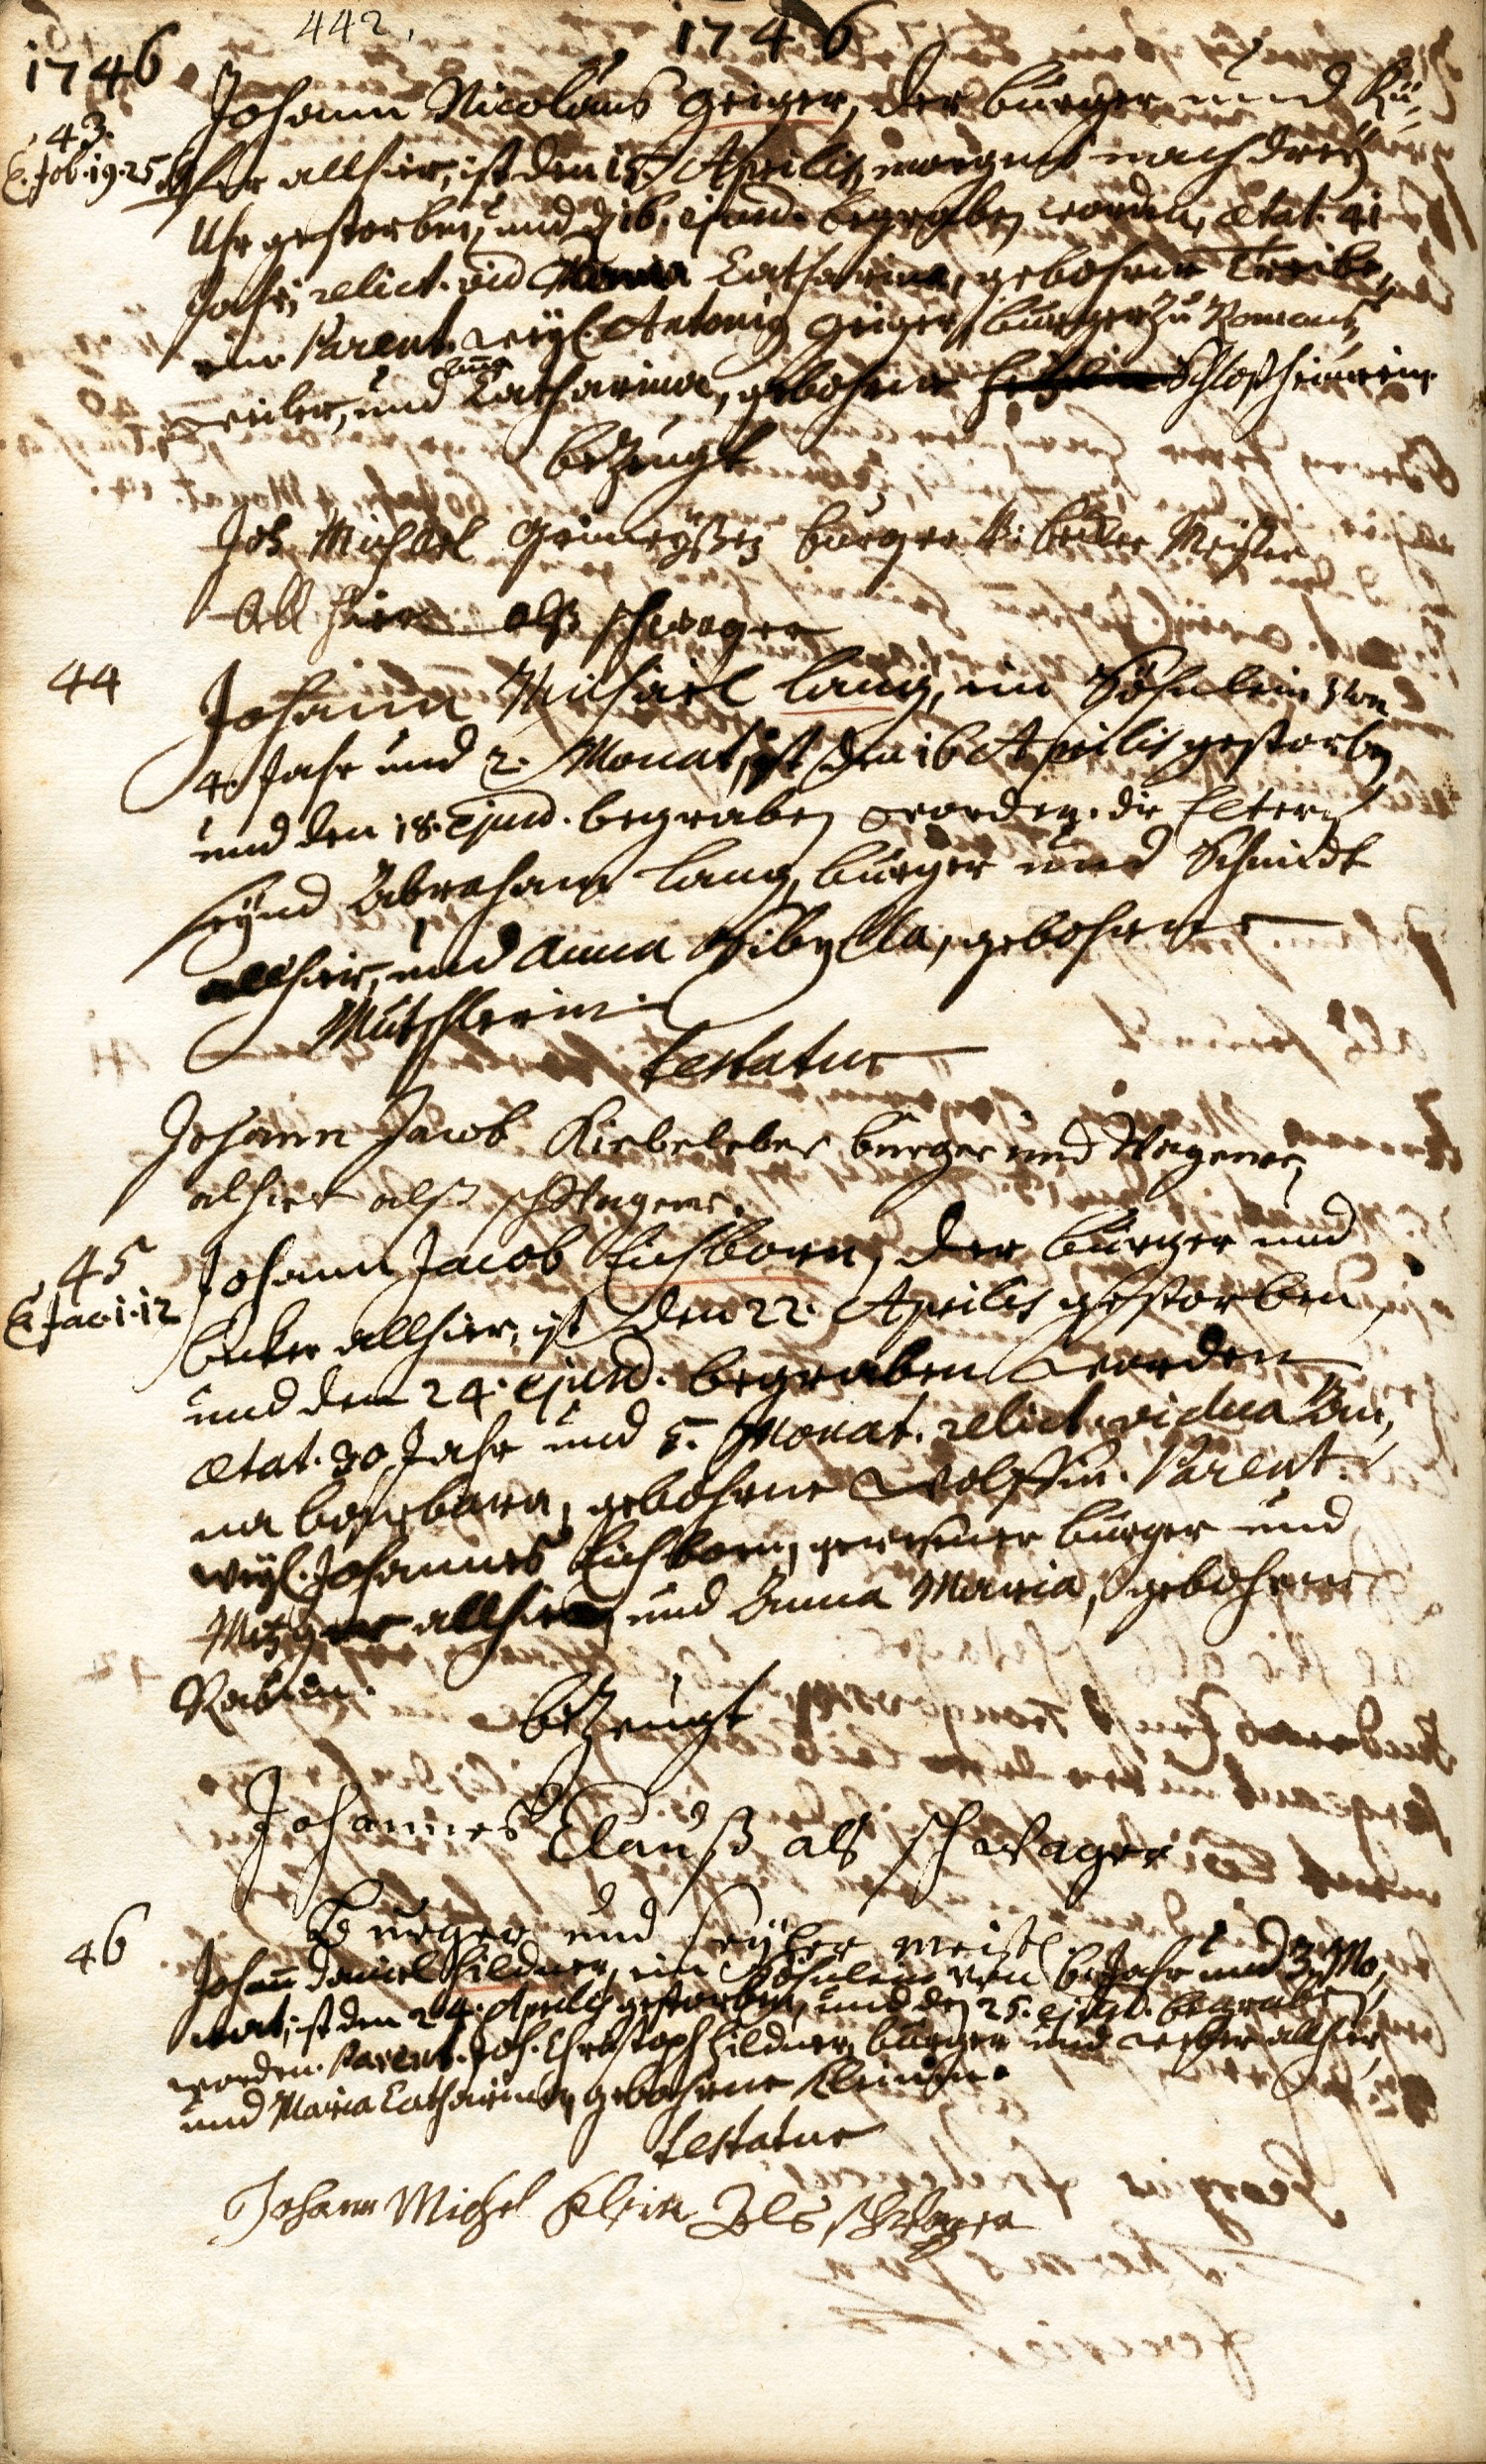 442.
1746
1746
43.
C. Job. 19. 25
Johann Nicolaus Geiger, der burger und Kü-
fer allhier, ist den 15. Aprilis morgens nach drey
Uhr gestorben, und d 16. ejusd. begraben worden, ætat. 41
Jahr, relict. vid Maria Catharina, gebohrne Treibe,
rin Parent. weyl. Antonig Geiger, burger zu Romans,
weiler, und Anna Catharina, gebohrne Schloßheimerin.
bezeugt
Joh Michael burger u. Meister
All hier alß schwager
44
Johann Michael Lang, ein Söhnlein von
4. Jahr und 2. Monat, ist den 16 Aprilis gestorben
und den 18. Ejusd. begraben worden. die Eltern
seynd Abraham Lang, burger und Schmidt
allhier, und Anna Sibylla, gebohrne
Mutschlerin.
testatur
Johann Jacob Kiebeleber burger und Wagener,
alhier alß schwagere.
45
C. Jac. 1. 12
Johann Jacob Eichborn, der burger und
becker allhier, ist den 22. Aprilis gestorben,
und den 24. ejusd. begraben worden
ætat. 30 Jahr und 5. Monat. relict. vidua An,
na barbara, gebohrne Wolffin. Parent.
weyl. Johannes Eichborn, gewesener burger und
Metzger allhier, und Anna Maria, gebohrne
Rabin.
bezeugt
Johannes Clauß als schwager
Burger und meist.
46
Johañ Daniel Hildner, ein Söhnlein von 6. Jahr und 3. Mo,
nat, ist den 24. Aprilis gestorben, und den 25. ejusd. begraben
worden. Parent. Joh. Christoph Hildner, burger und weber allhier,
und Maria Catharina, gebohrne Kleinin.
testatur
Johann Michel Klein Als schwager